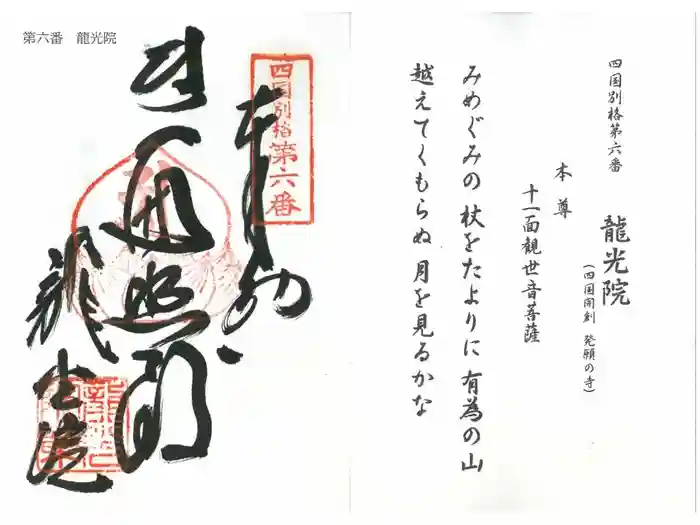 第六番 龍光院
四国別格第六番
奉納
遍照殿
龍光院
四国別格第六番
龍光院
(四国開創 発願の寺)
本尊
十一面観世音菩薩
みめぐみの 杖をたよりに 有為の山
越えてくもらぬ 月を見るかな